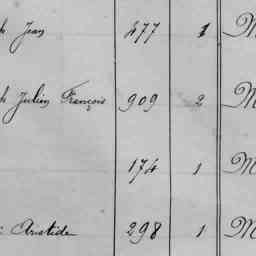 h Jean 477 1 M
h Julien François 909 2 M
174 1 M
i Aristide 298 1 M